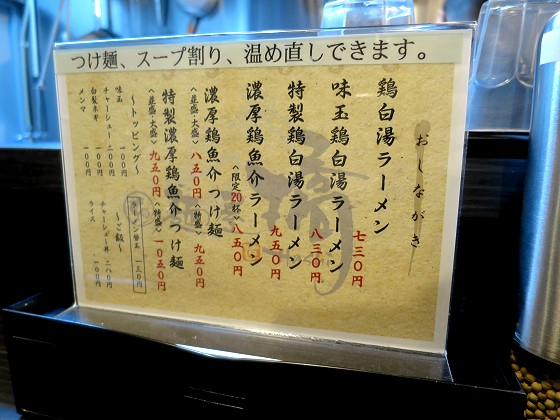 つけ麺、スープ割り、温め直しできます。
おしながき
鶏白湯ラーメン
七三〇円
味玉鶏白湯ラーメン
八三〇円
特製鶏白湯ラーメン
九五〇円
濃厚鶏魚介ラーメン
<限定20杯>八五〇円
濃厚鶏魚介つけ麺
<並盛・大盛>八五〇円<特盛>九五〇円
特製濃厚鶏魚介つけ麺
<並盛・大盛>九五〇円<特盛>一〇五〇円
〜トッピング〜
味玉 一〇〇円
チャーシュー 二〇〇円
白髪ネギ 一〇〇円
メンマ 一〇〇円
ラーメン替玉 一五〇円
〜ご飯〜
チャーシュー丼 二八〇円
ライス 一〇〇円